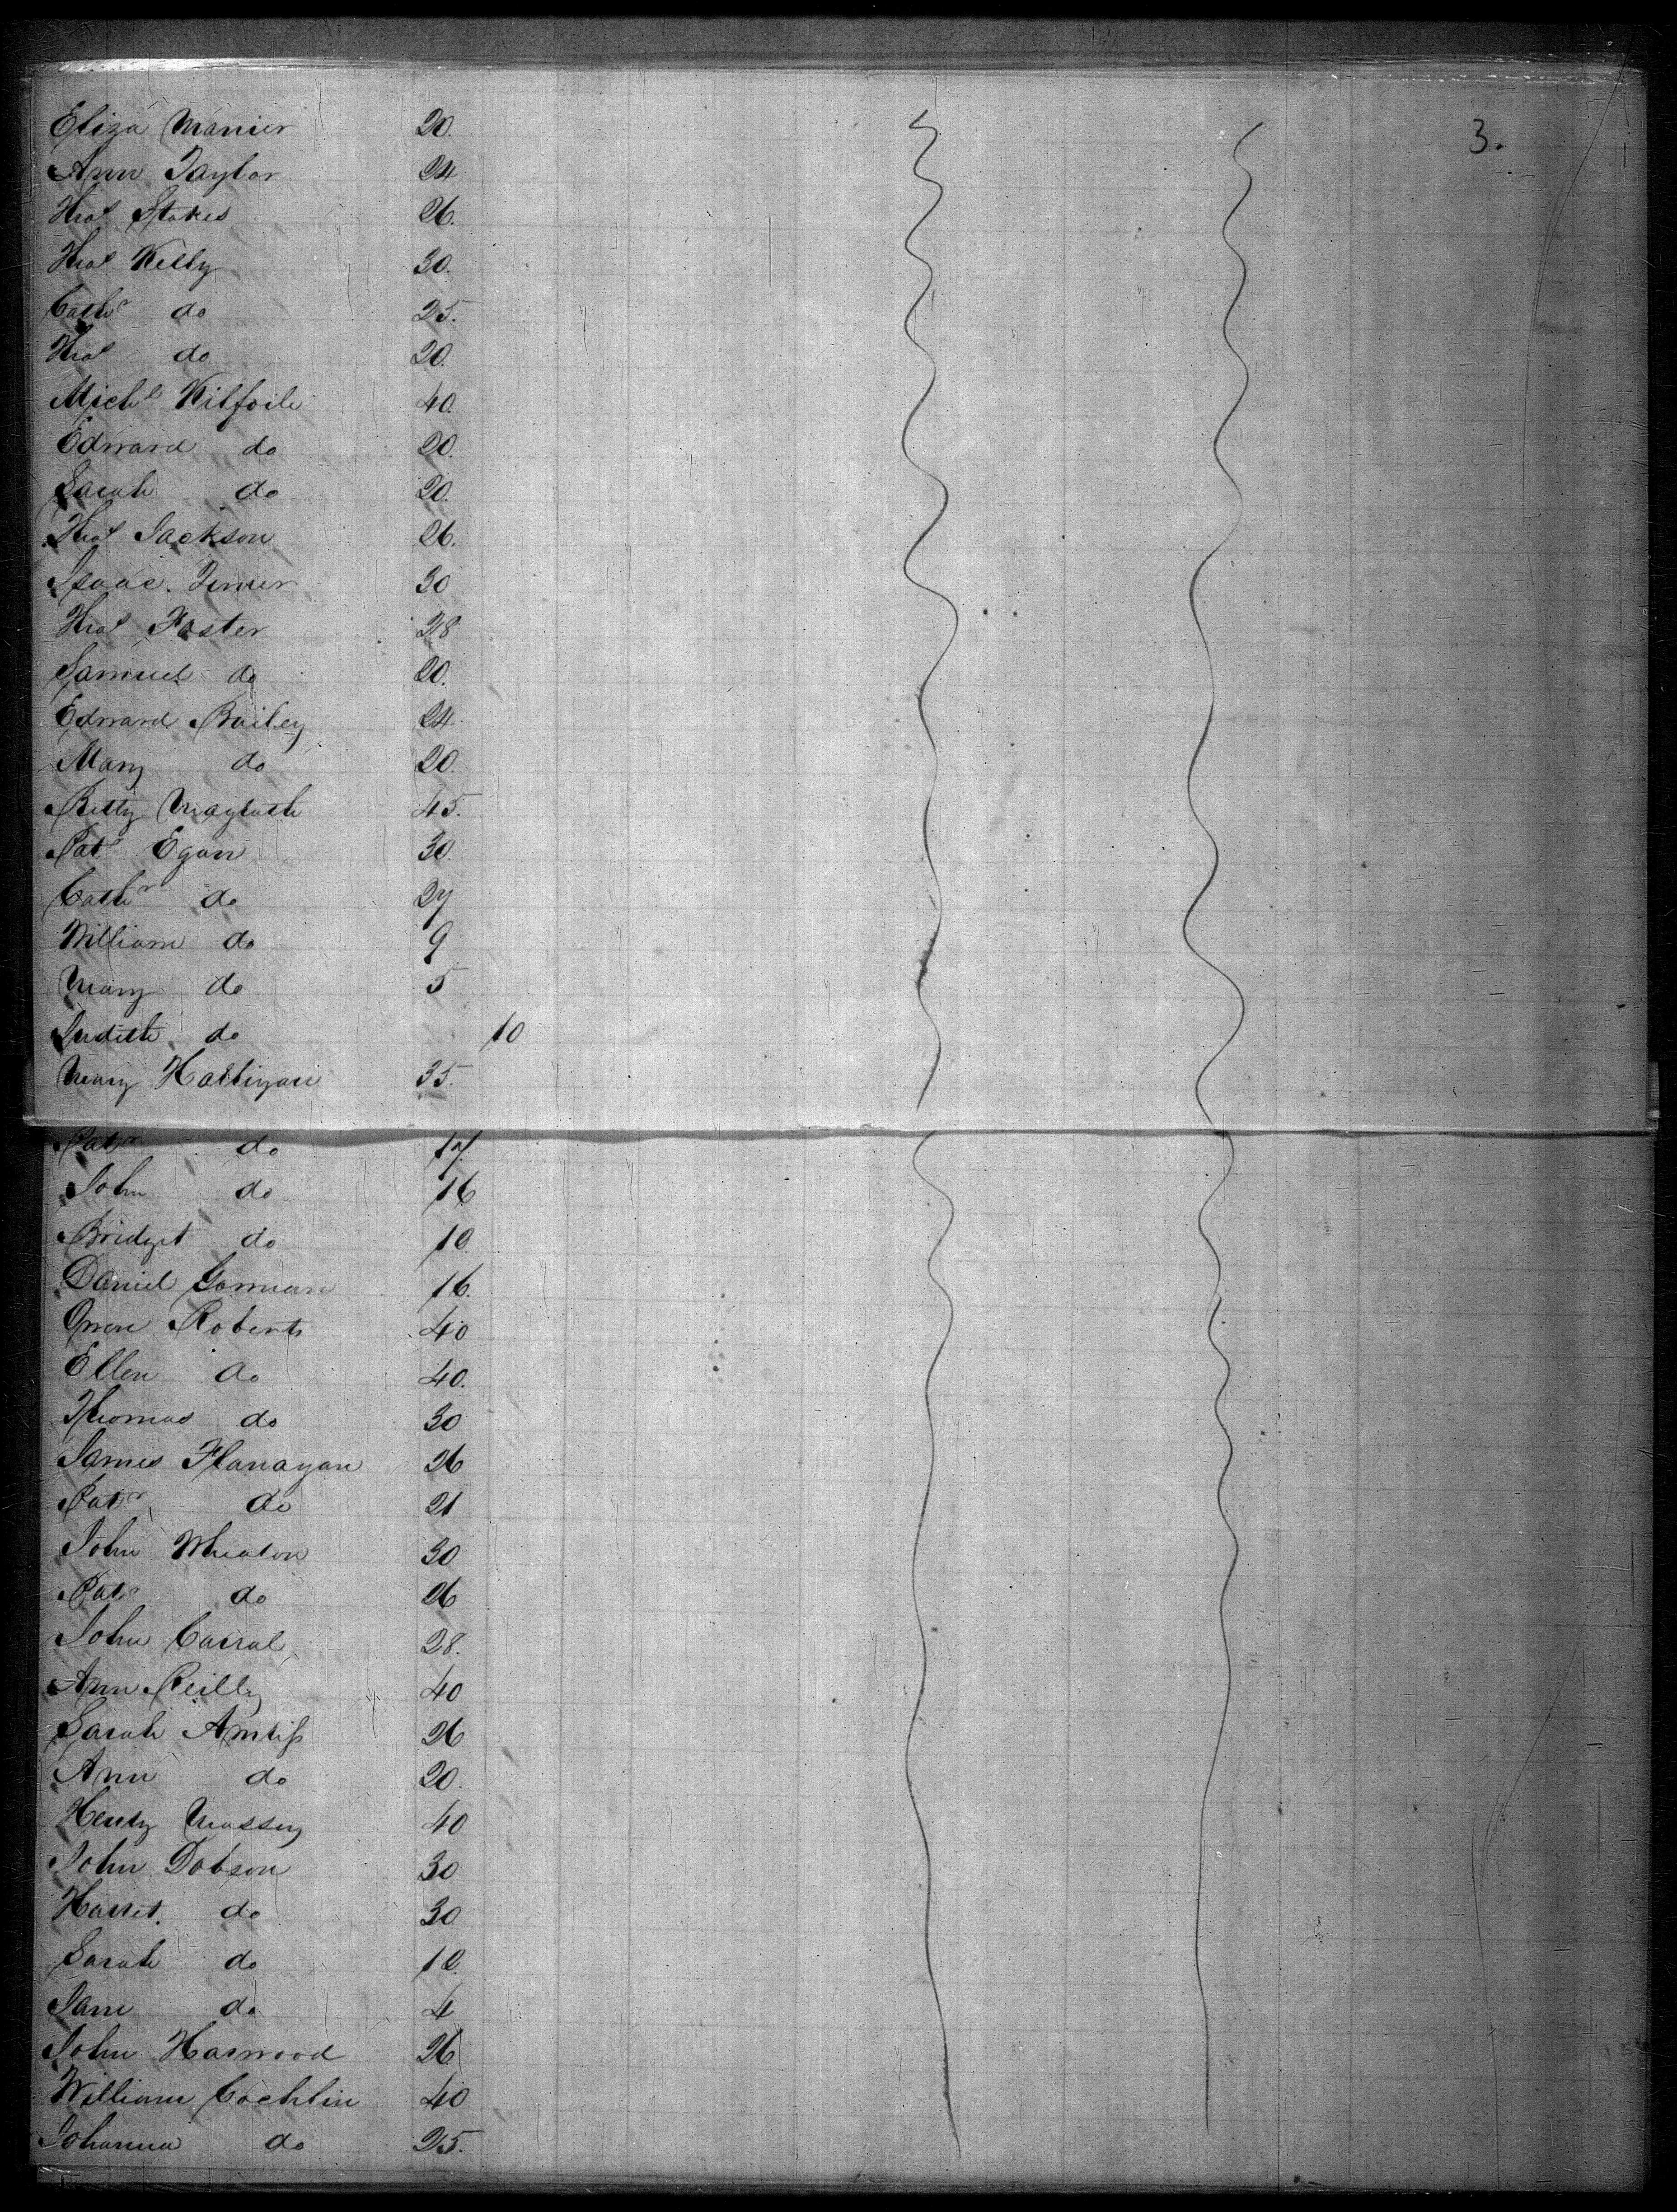 3.
Eliza Manier 20.
Ann Taylor 24
Thos Stokes 26.
Thos Kelly 30.
Cathe do 25.
Thos do 20.
Michl Kilfoile 40.
Edward do 20.
Sarah do 20.
Thos Jackson 26.
Isaac. 30
Thos Foster 28
Samuel do 20.
Edward Bailey 24.
Mary do 20.
Betty 45.
Patk Egan 30.
Cathe do 27
William do 9
Mary do 5
Judith do 10
Mary Hattigan 35.
Patk do 17.
John do 16
Bridget do 10
Daniel Gorman 16.
Owen Roberts 40
Ellen do 40.
Thomas do 30
James Flanagan 26
Patk do 21
John Wheaton 30
Patk do 26
John Carral 28.
Ann Reilly 40
Sarah 26
Ann do 20.
Henry Massey 40
John Dobson 30
Harret. do 30
Sarah do 12.
Jane do 4
John Harwood 26
William Cochlin 40
Johanna do 25.